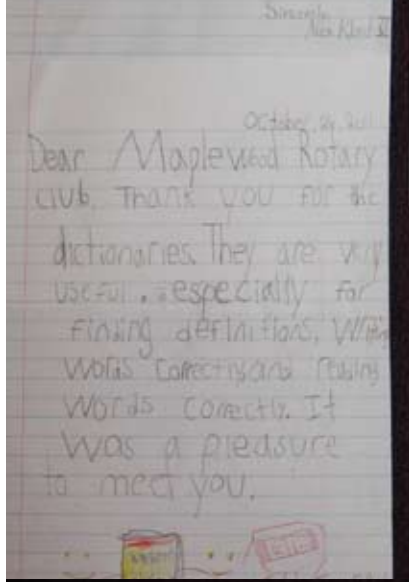 Sincerely,
October, 24, 201
Dear Maplewood Rotary
club. Thank you for the
dictionaries. They are very
useful, especially for
finding definitions, Writing
words correctly and reading
words correctly. It
was a pleasure
to meet you.